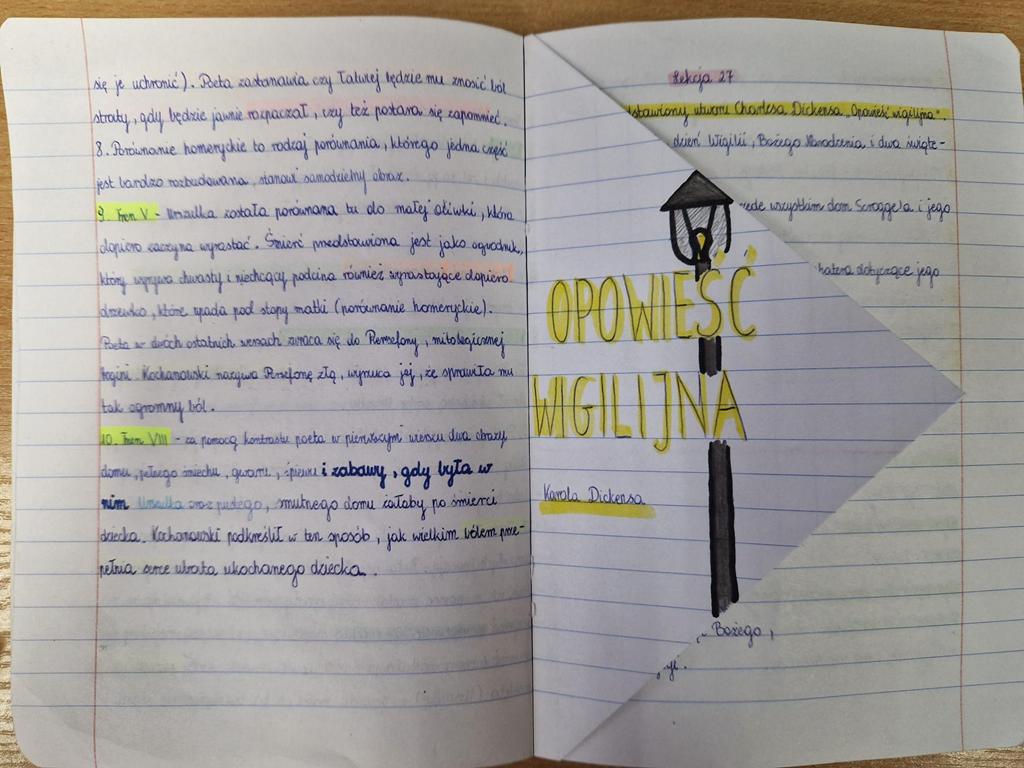 się je uchronić). Poeta zastanawia czy łatwiej będzie mu znosić ból
straty, gdy będzie jawnie rozpaczał, czy też postara się zapomnieć.
8. Porównanie homeryckie to rodzaj porównania, którego jedna część
jest bardzo rozbudowana, stanowi samodzielny obraz.
9. Tren V - Urszulka została porównana tu do małej oliwki, która
dopiero zaczyna wyrastać. Śmierć przedstawiona jest jako ogrodnik,
który wyrywa chwasty i niechcący podcina również wyrastające dopiero
drzewko, które spada pod stopy matki (porównanie homeryckie).
Poeta w dwóch ostatnich wersach zwraca się do Persefony, mitologicznej
bogini. Kochanowski nazywa Persefonę złą, wyrzuca jej, że sprawiła mu
tak ogromny ból.
10. Tren VIII - za pomocą kontrastu poeta w pierwszym wierszu dwa obrazy
domu, pełnego śmiechu, gwaru, śpiewu i zabawy, gdy była w
nim Urszulka oraz pustego, smutnego domu żałoby po śmierci
dziecka. Kochanowski podkreślił w ten sposób, jak wielkim bólem prze-
pełnia serce utrata ukochanego dziecka.
Lekcja 27
stawiony utworu Charlesa Dickensa „Opowieść wigilijna"
dzień Wigilii, Bożego Narodzenia i dwa święte-
rede wszystkim dom Scrooge'a i jego
hatera dotyczące jego
OPOWIEŚĆ
WIGILIJNA
Karola Dickensa
Bożego,